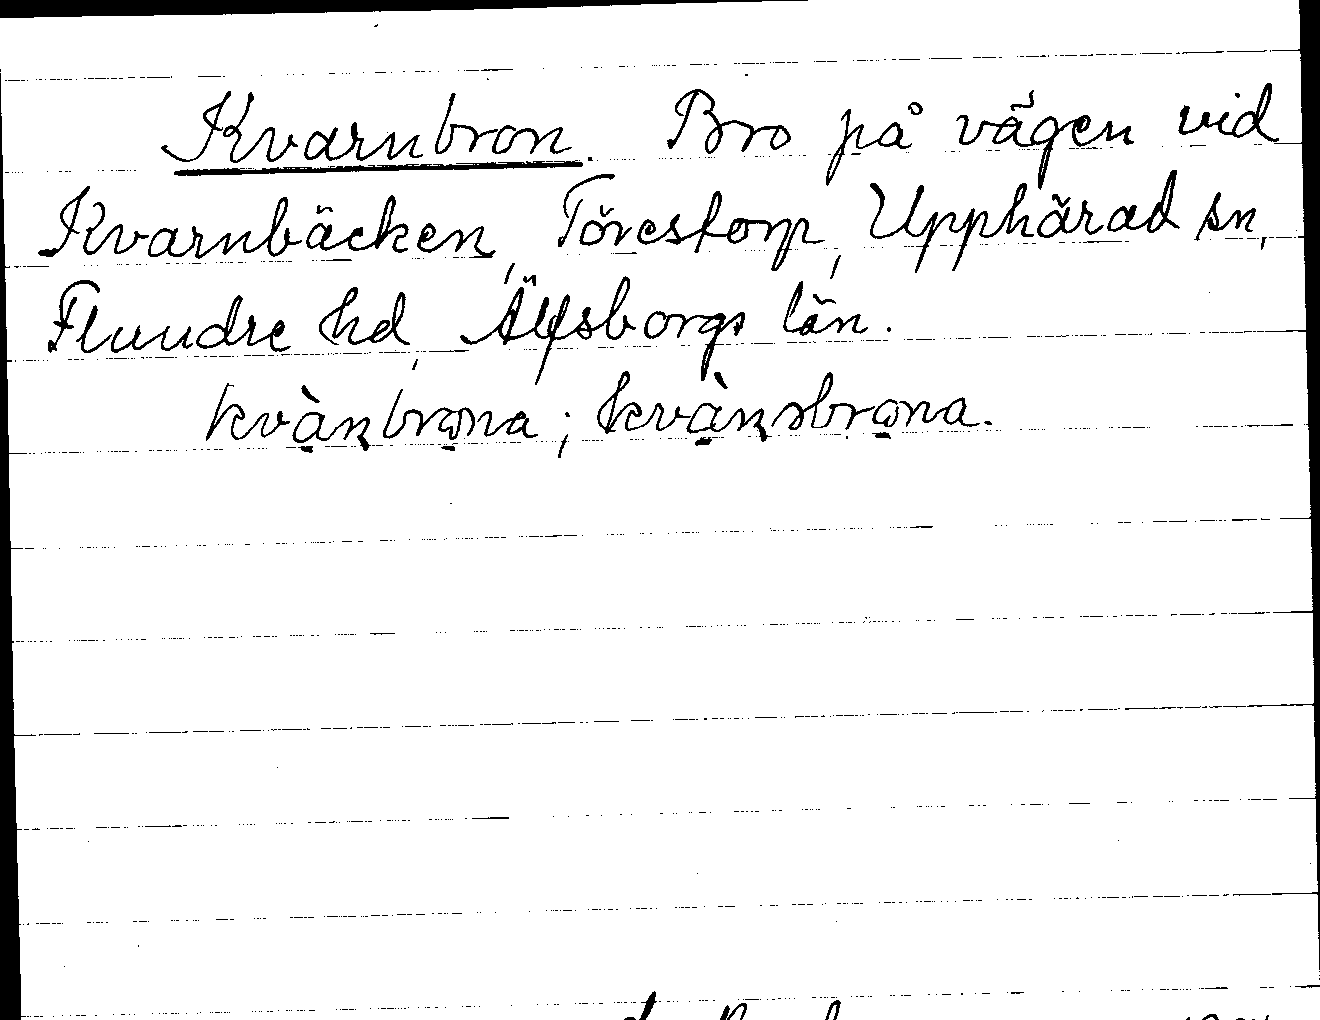 Kvarnbron. Bro på vägen vid
Kvarnbäcken, Torestorp, Upphärad sn,
Flundre hd, Älfsborgs län.
kvàṇbro̠na; kvàṇsbro̠na.